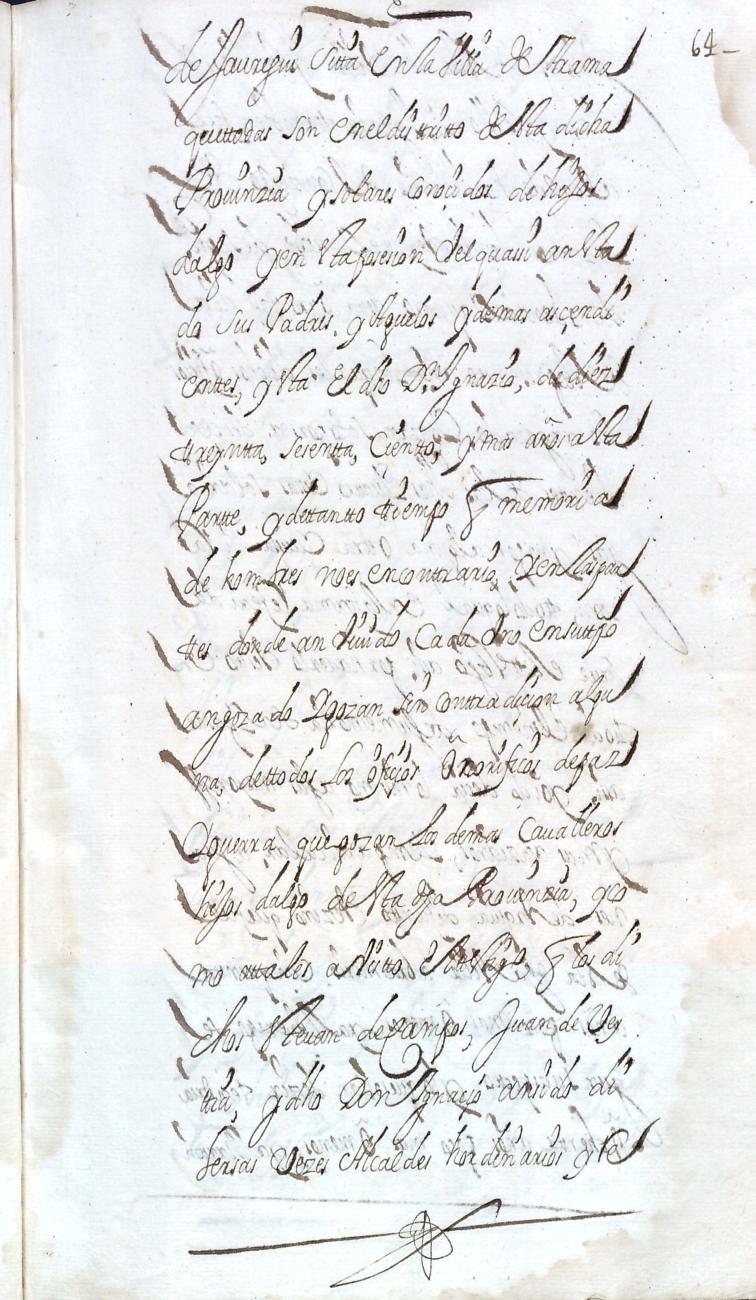 64
de Jauregui sitta en la Villa de Arama
que ttodas son en el disttritto desta dicha
Provinzia y solares conozidos de hijos
dalgo y en esta posesion vel quassi an esta
do sus Padres, y Aguelos y demas ascendi
enttes, y esta El dho Dn Ignazio, de diez
ttreyntta, sesentta, Ciento, y mas años a esta
Partte, y dettantto ttiempo q memoria
de hombres noes encontrario, y en las par
ttes donde an vivido, Cada Vno en su ttpo
an gozado y gozan sin contradicion algu
na, de ttodos los ofizios onorificos de paz
y guerra, que gozan los demas Cavalleros
hijos dalgo desta dha Provinzia, y co
mo attales a visto este tesgo q los di
chos estevan de Campos, Juan de Vey
ttia, y dho Don Ignacio an sido di
bersas Vezes Alcaldes hordinarios y Re